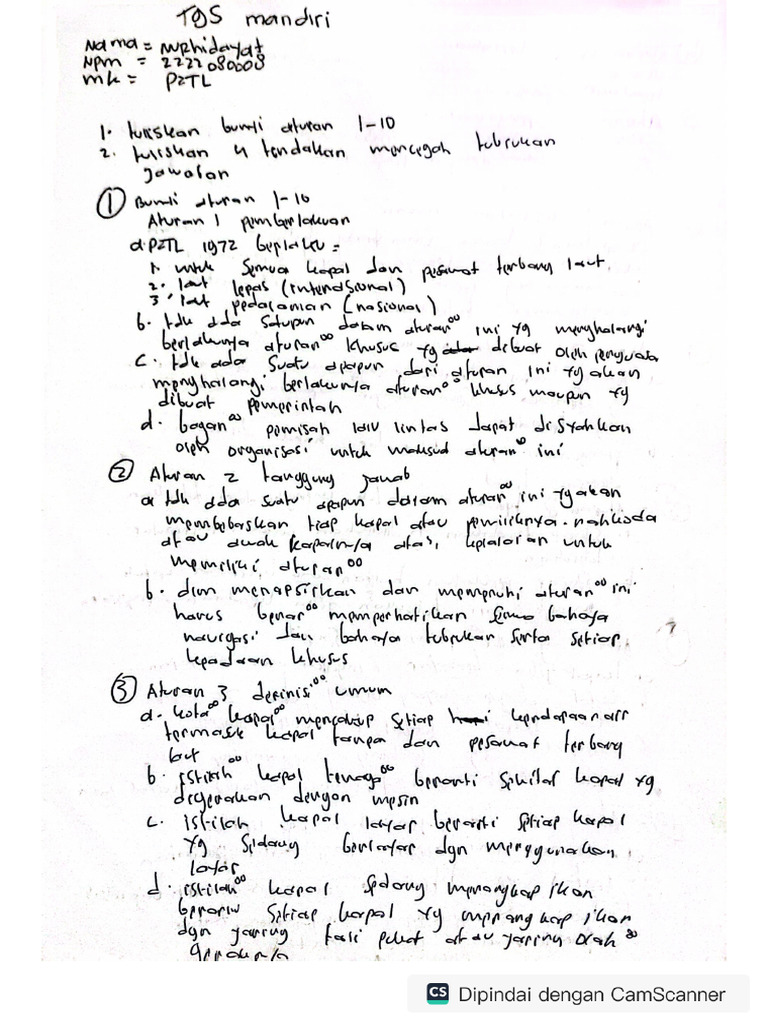 TGS mandiri
Nama = Nurhidayat
Npm = 2222080008
mk = P2TL
1. tuliskan bunyi aturan 1-10
2. tuliskan 4 tindakan mencegah tubrukan
Jawaban
① Bunyi aturan 1-10
Aturan 1 pemberlakuan
a. P2TL 1972 berlaku =
1. untuk semua kapal dan pesawat terbang laut
2. laut lepas (internasional)
3. laut pedalaman (nasional)
b. tdk ada satupun dalam aturan°° ini yg menghalangi
berlakunya aturan°° khusus yg dibuat oleh penguasa
c. tdk ada suatu apapun dari aturan ini yg akan
menghalangi berlakunya aturan°° khusus maupun yg
dibuat pemerintah
d. bagan°° pemisah lalu lintas dapat disyahkan
oleh organisasi untuk maksud aturan°° ini
② Aturan 2 tanggung jawab
a tdk ada suatu apapun dalam aturan°° ini yg akan
membebaskan tiap kapal atau pemiliknya. nahkoda
atau awak kapalnya atas, kelalaian untuk
memenuhi aturan°°
b. dlm menapsirkan dan mempnuhi aturan°° ini
harus benar°° memperhatikan semua bahaya
navigasi dan bahaya tubrukan serta setiap
keadaan khusus
③ Aturan 3 definisi°° umum
a. kata°° kapal°° mencakup setiap kendaraan air
termasuk kapal tanpa dan pesawat terbang
laut
b. istilah°° kapal tenaga°° berarti kapal yg
digerakan dengan mesin
c. istilah kapal layar berarti setiap kapal
yg sedang berlayar dgn menggunakan
layar
d. istilah°° kapal sedang menangkap ikan
berarti setiap kapal yg menangkap ikan
dgn jaring tali pukat atau jaring
CS Dipindai dengan CamScanner